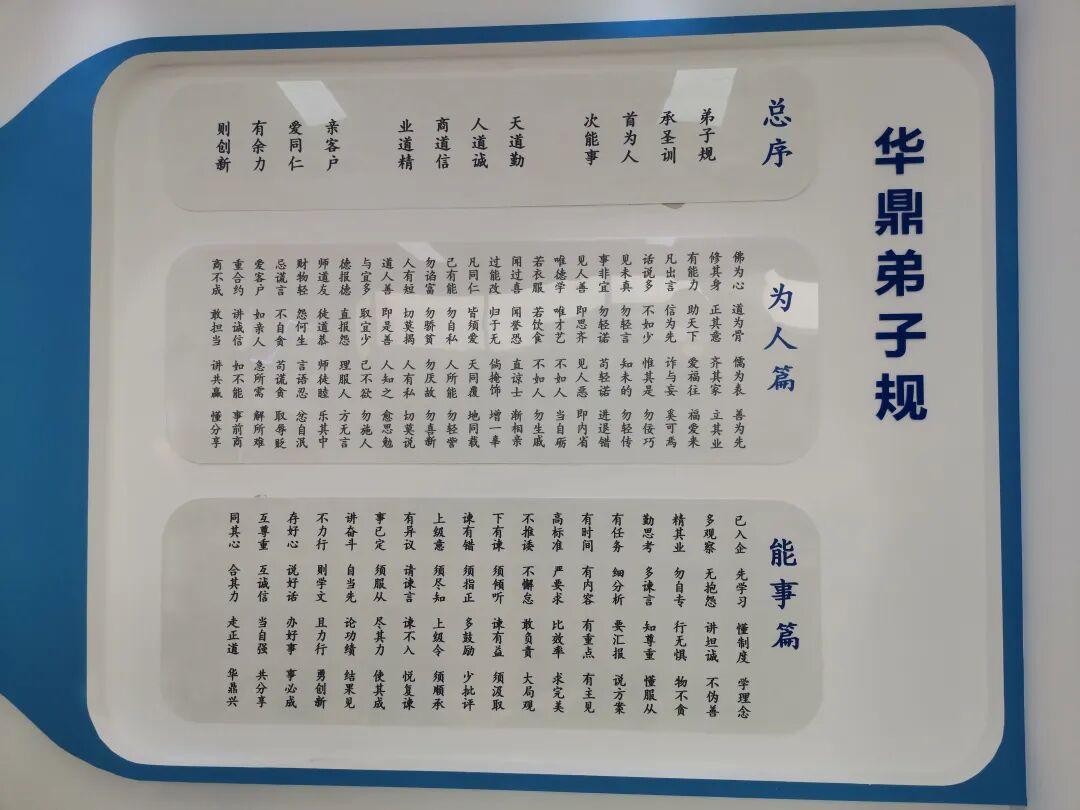 华鼎弟子规
总序
弟子规
承圣训
首为人
次能事
天道勤
人道诚
商道信
业道精
亲客户
爱同仁
有余力
则创新
为人篇
佛为心 道为骨 儒为表 善为先
修其身 正其意 齐其家 立其业
有能力 助天下 爱福往 福爱来
凡出言 信为先 诈与妄 奚可焉
话说多 不如少 惟其是 勿佞巧
见未真 勿轻言 知未的 勿轻传
事非宜 勿轻诺 苟轻诺 进退错
见人善 即思齐 见人恶 即内省
唯德学 唯才艺 不如人 当自砺
若衣服 若饮食 不如人 勿生戚
闻过喜 闻誉恐 直谅士 渐相亲
过能改 归于无 倘掩饰 增一辜
凡同仁 皆须爱 天同覆 地同载
己有能 勿自私 人所能 勿轻营
勿谄富 勿骄贫 勿厌故 勿喜新
人有短 切莫揭 人有私 切莫说
道人善 即是善 人知之 愈思勉
与宜多 取宜少 己不欲 勿施人
德报德 直报怨 理服人 方无言
师道友 徒道恭 师徒睦 乐其中
财物轻 怨何生 言语忍 忿自泯
忌谎言 不自贪 苟谎贪 取辱贬
爱客户 如亲人 急所需 解所难
重合约 讲诚信 如不能 事前商
商不成 敢担当 讲共赢 懂分享
能事篇
已入企 先学习 懂制度 学理念
多观察 无抱怨 讲坦诚 不伪善
精其业 勿自专 行无惧 物不贪
勤思考 多谏言 知尊重 懂服从
有任务 细分析 要汇报 说方案
有时间 有内容 有重点 有主见
高标准 严要求 比效率 求完美
不推诿 不懈怠 敢负责 大局观
下有谏 须倾听 谏有益 须汲取
谏有错 须指正 多鼓励 少批评
上级意 须尽知 上级令 须顺承
有异议 请谏言 谏不入 悦复谏
事已定 须服从 尽其力 使其成
讲奋斗 自当先 论功绩 结果见
不力行 则学文 且力行 勇创新
存好心 说好话 办好事 事必成
互尊重 互诚信 当自强 共分享
同其心 合其力 走正道 华鼎兴